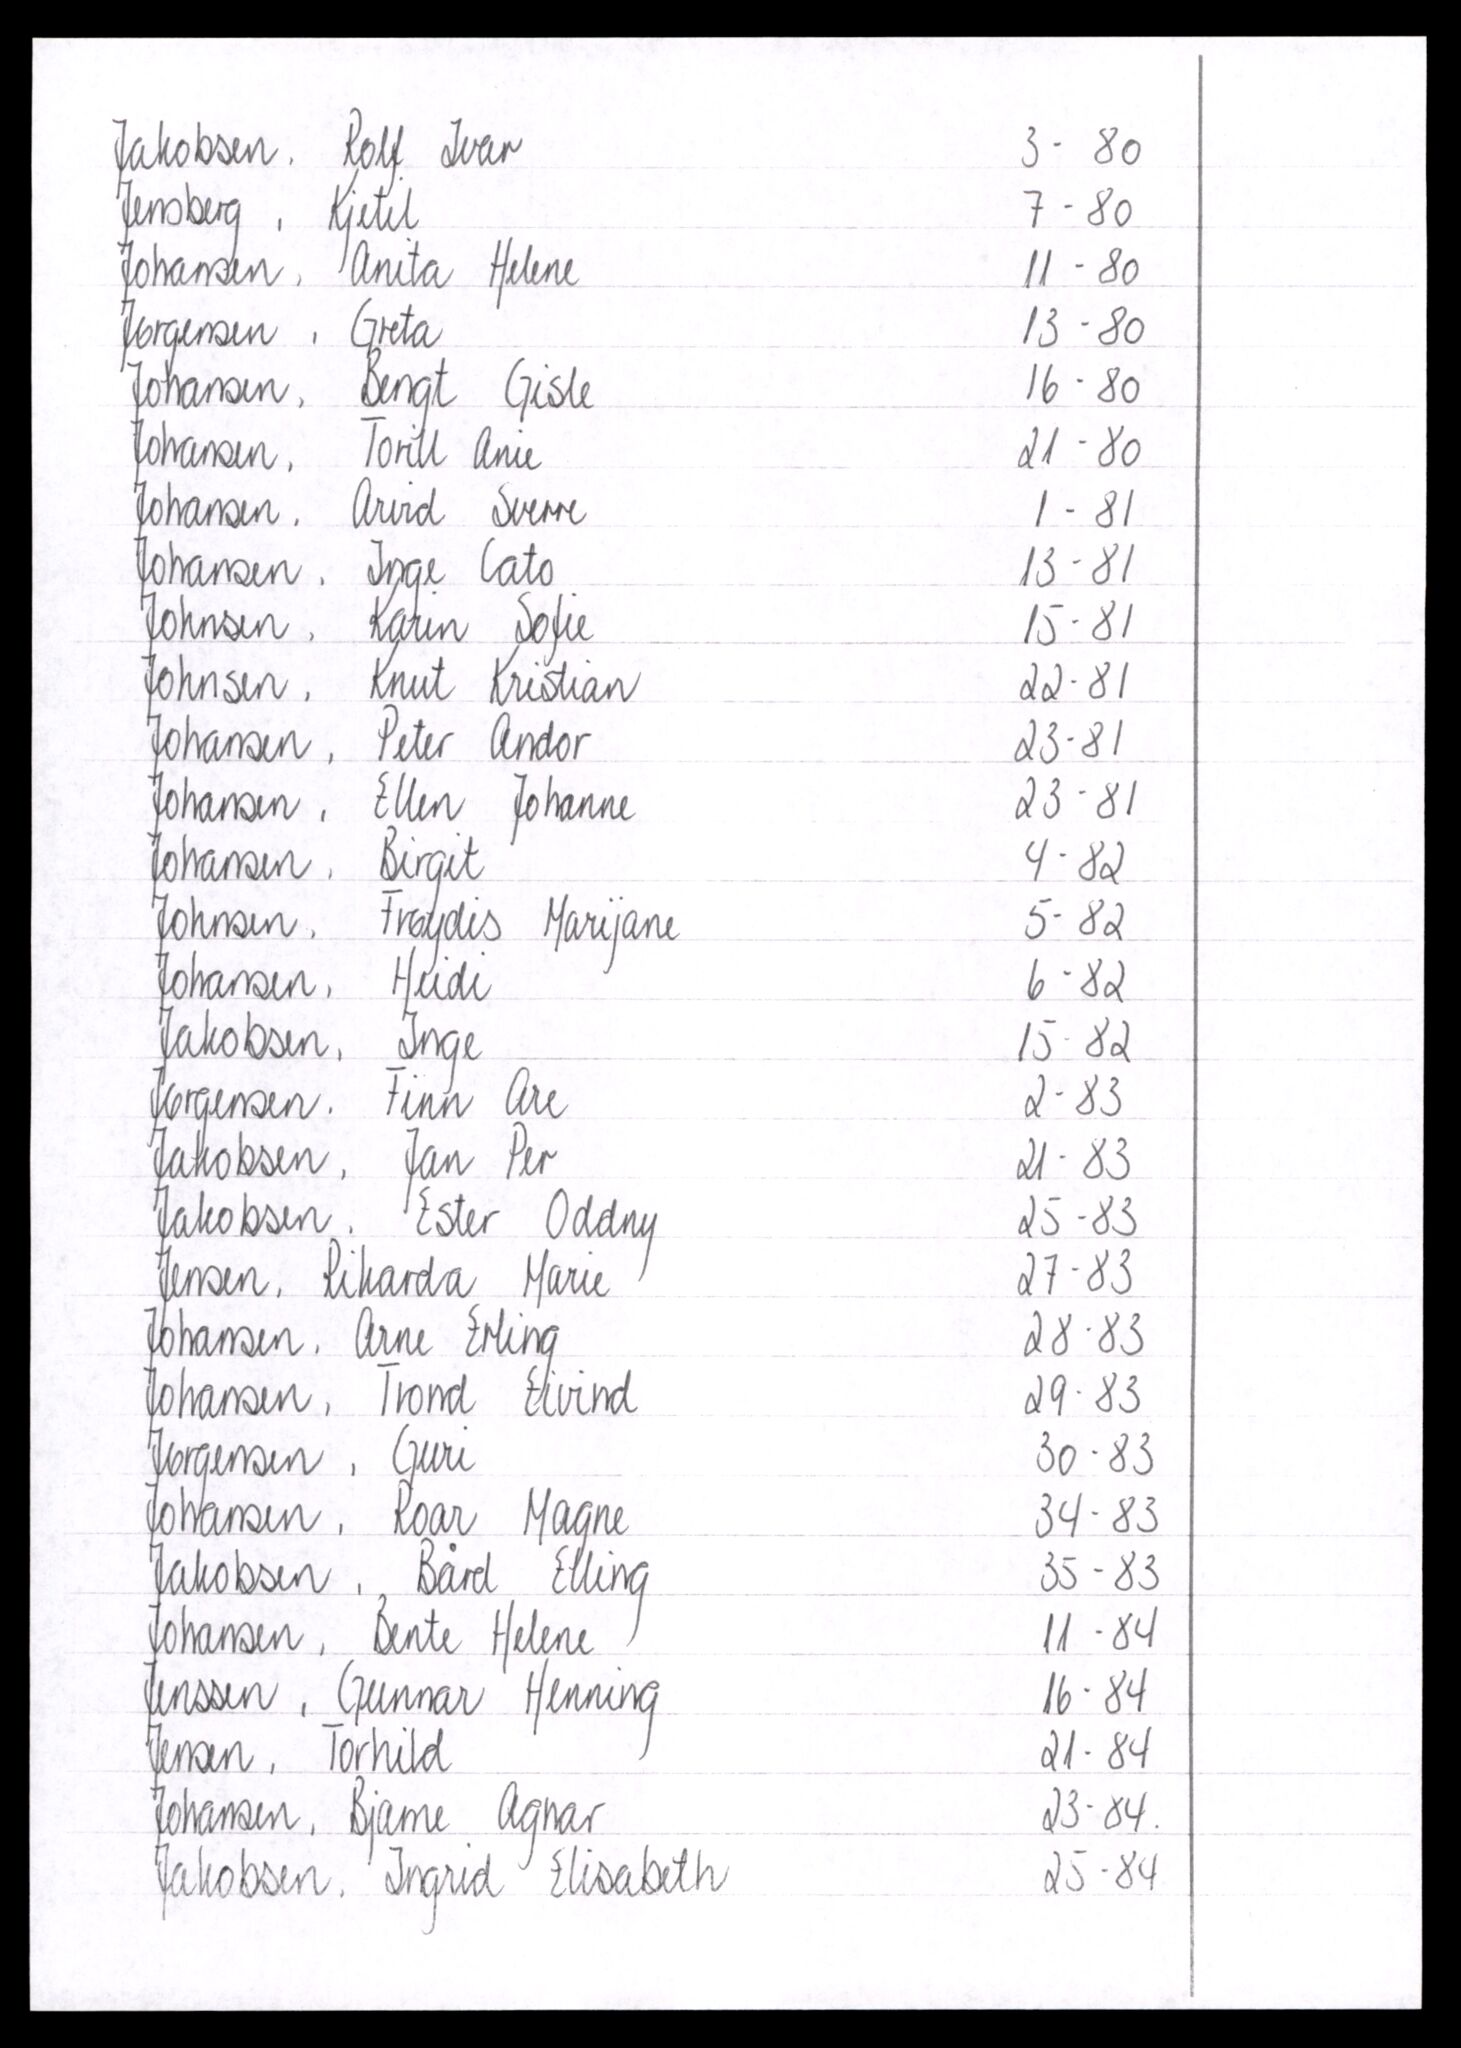 Jakobsen, Rolf Ivar 3 - 80
Jensberg, Kjetil 7 - 80
Johansen, Anita Helene 11 - 80
Jørgensen, Greta 13 - 80
Johansen, Bengt Gisle 16 - 80
Johansen, Torill Anie 21 - 80
Johansen, Arvid Sverre 1 - 81
Johansen, Inge Cato 13 - 81
Johnsen, Karin Sofie 15 - 81
Johnsen, Knut Kristian 22 - 81
Johansen, Peter Andor 23 - 81
Johansen, Ellen Johanne 23 - 81
Johansen, Birgit 4 - 82
Johnsen, Frøydis Marijane 5 - 82
Johansen, Heidi 6 - 82
Jakobsen, Inge 15 - 82
Jørgensen, Finn Are 2 - 83
Jakobsen, Jan Per 21 - 83
Jakobsen, Ester Oddny 25 - 83
Jensen, Rikarda Marie 27 - 83
Johansen, Arne Erling 28 - 83
Johansen, Trond Eivind 29 - 83
Jørgensen, Guri 30 - 83
Johansen, Roar Magne 34 - 83
Jakobsen, Bård Elling 35 - 83
Johansen, Bente Helene 11 - 84
Jenssen, Gunnar Henning 16 - 84
Jensen, Torhild 21 - 84
Johansen, Bjarne Agnar 23 - 84.
Jakobsen, Ingrid Elisabeth 25 - 84